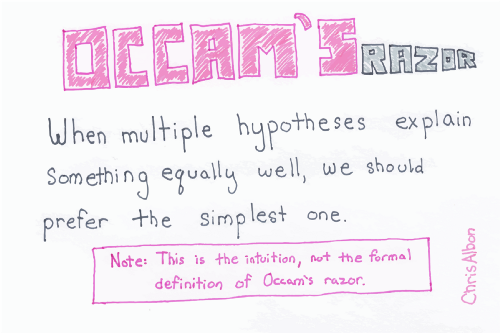 OCCAM'S RAZOR
When multiple hypotheses explain
Something equally well, we should
prefer the simplest one.
Note: This is the intuition, not the formal
definition of Occam's razor.
ChrisAlbon